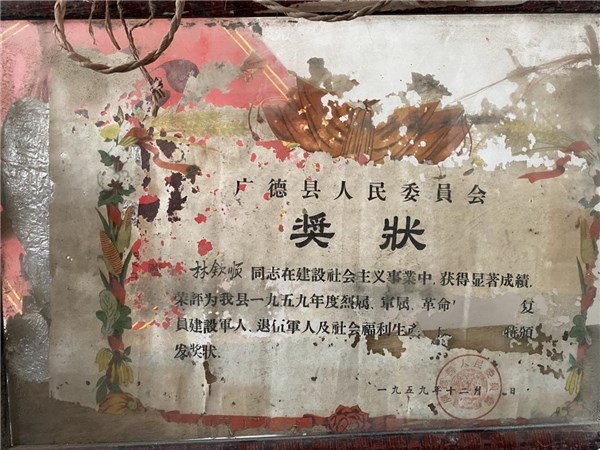 广德县人民委員会
奖狀
林钦顺 同志在建設社会主义事業中, 获得显著成績.
荣評为我县一九五九年度烈属, 軍属, 革命 复
員建設軍人, 退伍軍人及社会福利生 特頒
发奖狀.
一九五九年十二月 日